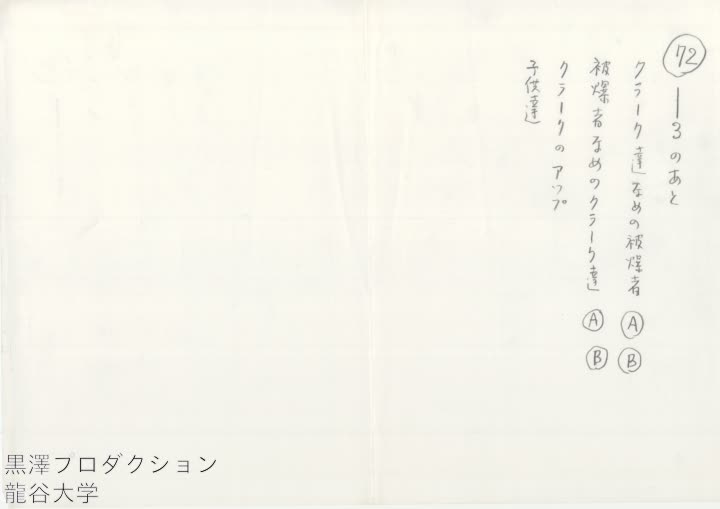 72―3のあと
クラーク達なめの被爆者 A B
被爆者なめのクラーク達 A B
クラークのアップ
子供達
黒澤プロダクション
龍谷大学